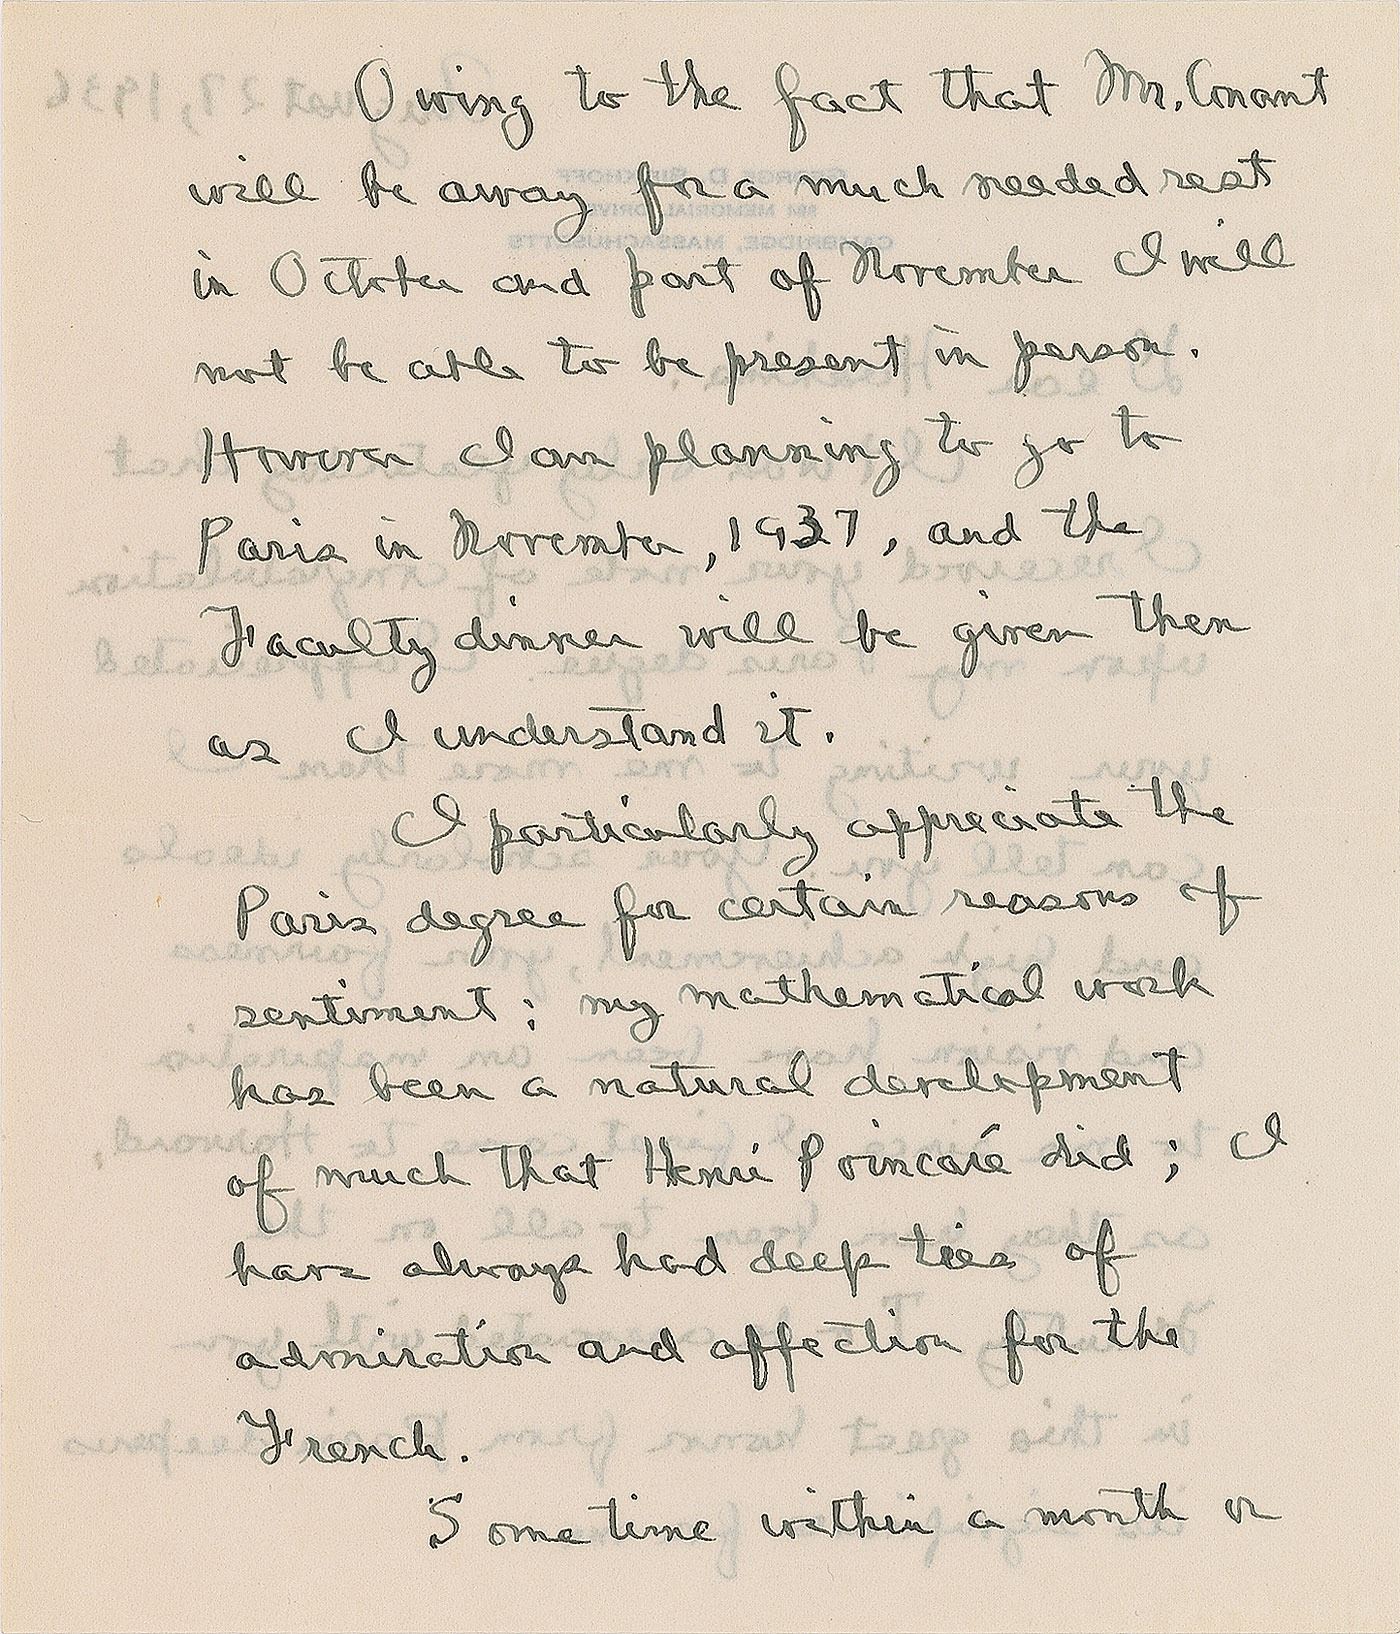 Owing to the fact that Mr. Conant
will be away for a much needed rest
in October and part of November I will
not be able to be present in person.
However I am planning to go to
Paris in November, 1937, and the
Faculty dinner will be given then
as I understand it.
I particularly appreciate the
Paris degree for certain reasons of
sentiment: my mathematical work
has been a natural development
of much that Henri Poincaré did; I
have always had deep ties of
admiration and affection for the
French.
Sometime within a month or